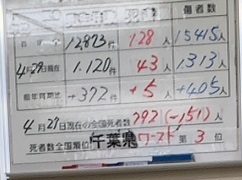 傷者数
12,873件 128人 15415人
4月29日現在 1.120件 43人 1313人
前年同期比 +372件 +5人 +405人
4月27日現在の全国死者数 792(-151)人
死者数全国順位 千葉県 ワースト 第3位